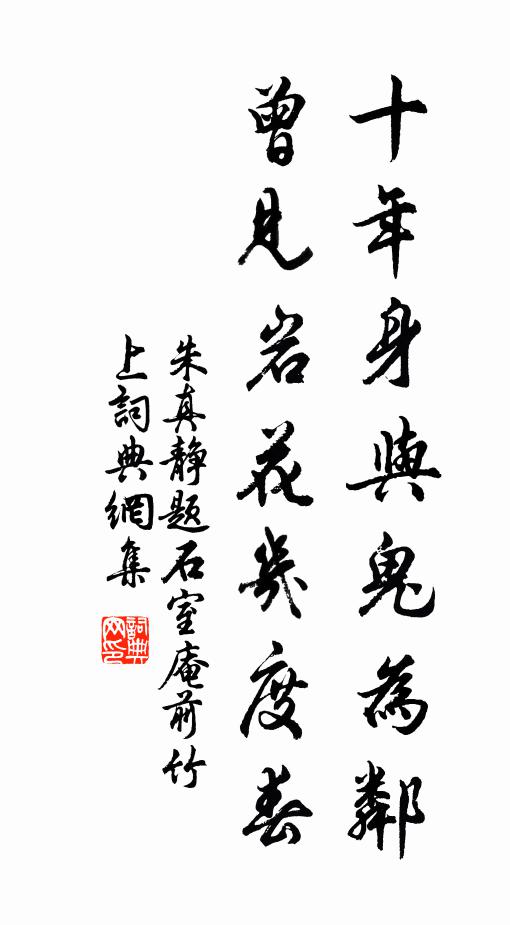 十年身與鬼為鄰
曾見岩花幾度春
朱真静题石室庵前竹
上詞典網集
詞典網印